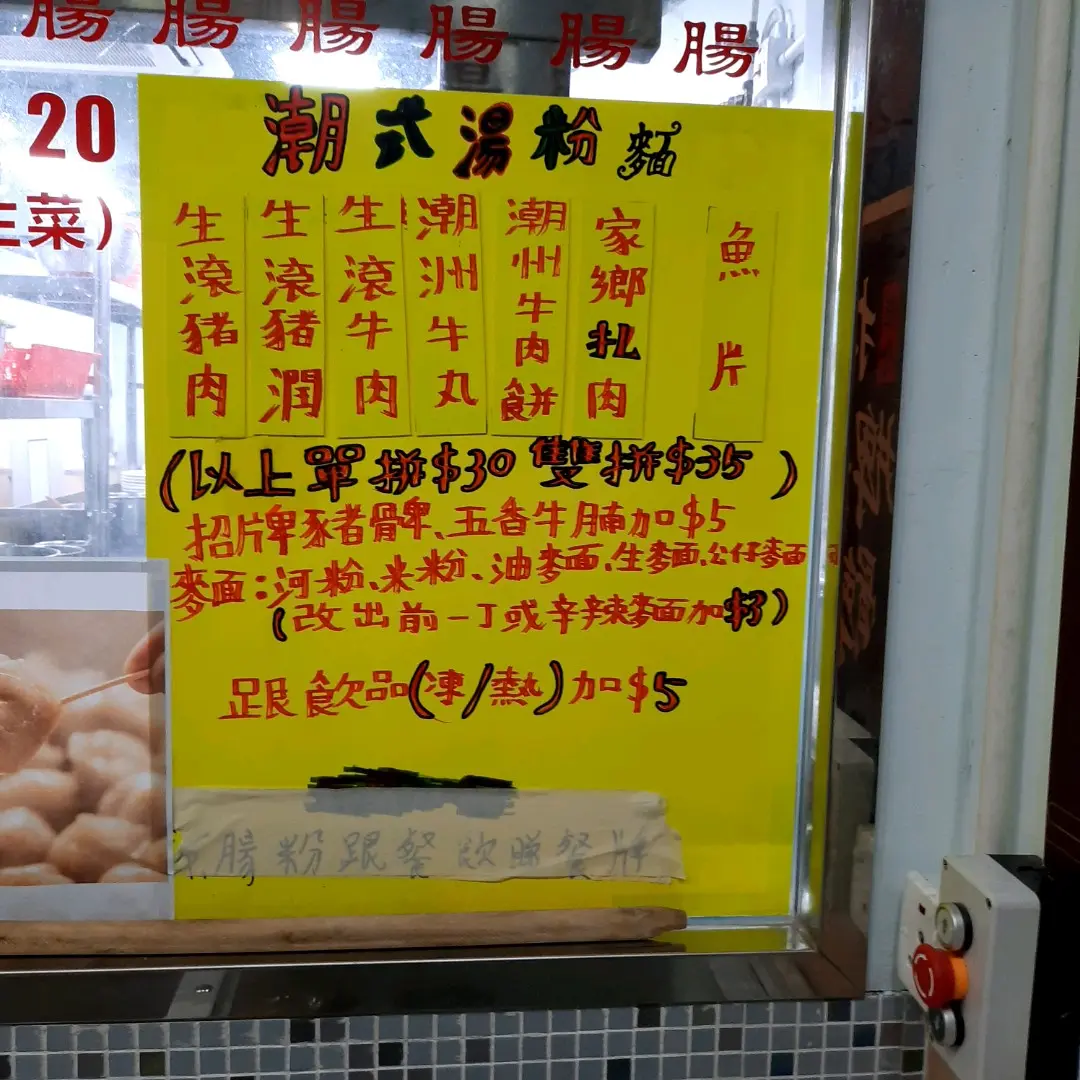 腸腸腸腸腸腸
20
生菜）
潮式湯粉麵
生滾豬肉
生滾豬潤
生滾牛肉
潮洲牛丸
潮州牛肉餅
家鄉扎肉
魚片
(以上單拼$30 雙拼$35)
招牌豬髀、五香牛腩加$5
麥面：河粉、米粉、油麥面、生麥面、公仔麥面
(改出前一丁或辛辣麥面加$3)
跟飲品(凍/熱)加$5
腸粉跟餐飲睇餐牌